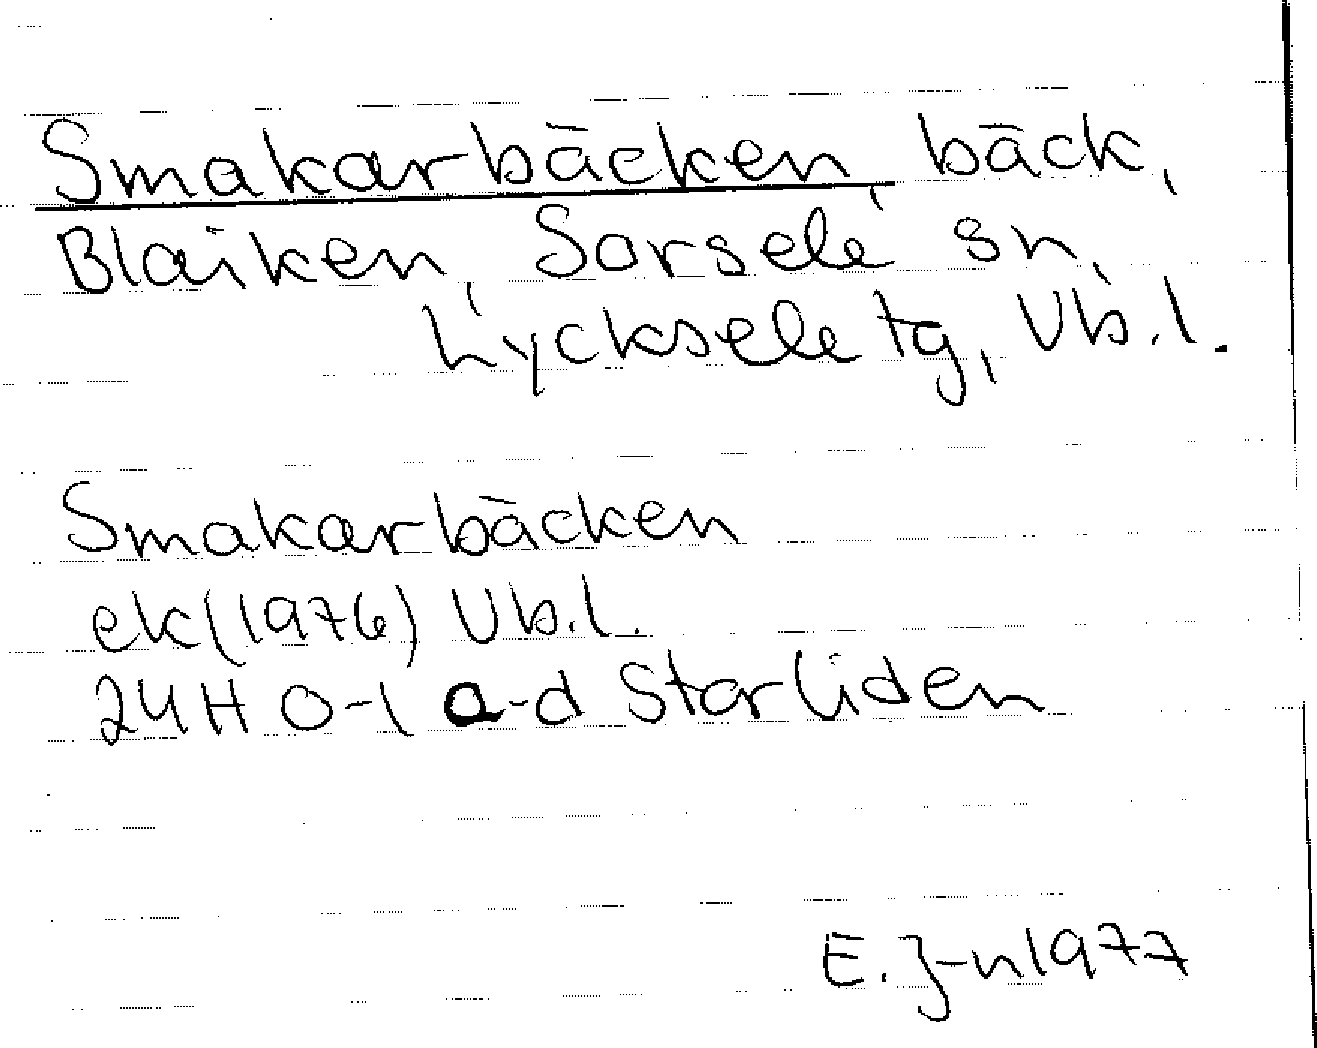 Smakarbäcken, bäck,
Blaiken, Sorsele sn,
Lycksele tg, Vb.l.
Smakarbäcken
ek(1976) Vb.l.
24H 0-1 a-d Starliden
E. J-n 1977